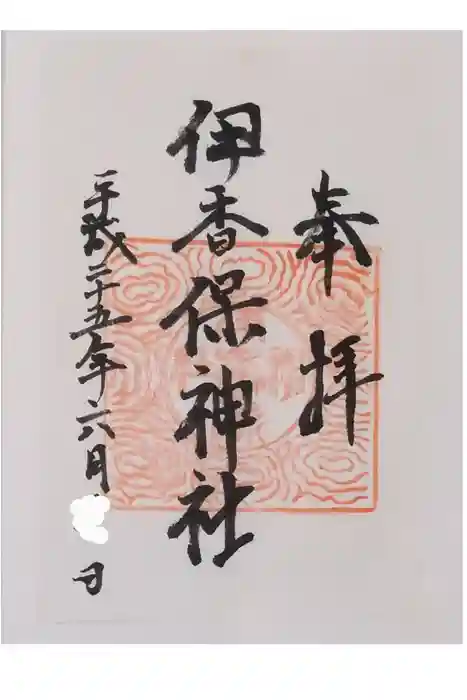 奉拝
伊香保神社
平成二十五年六月
日